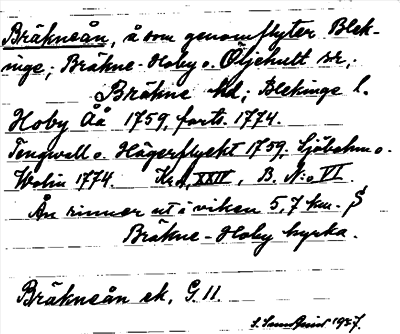 Bräkneån, å som genomflyter Blek-
inge; Bräkne-Hoby o. Öljehult sr,.
Bräkne hd; Blekinge l.
Hoby Åå 1759, forts. 1774.
Tengwall o. Hägerflyckt 1759, Sjöbohm o.
Wolin 1774. XXIV, B. N:o VI.
Ån rinner ut i viken 5,7 km. S
Bräkne-Hoby kyrka.
Bräkneån ek. G 11.
1927.